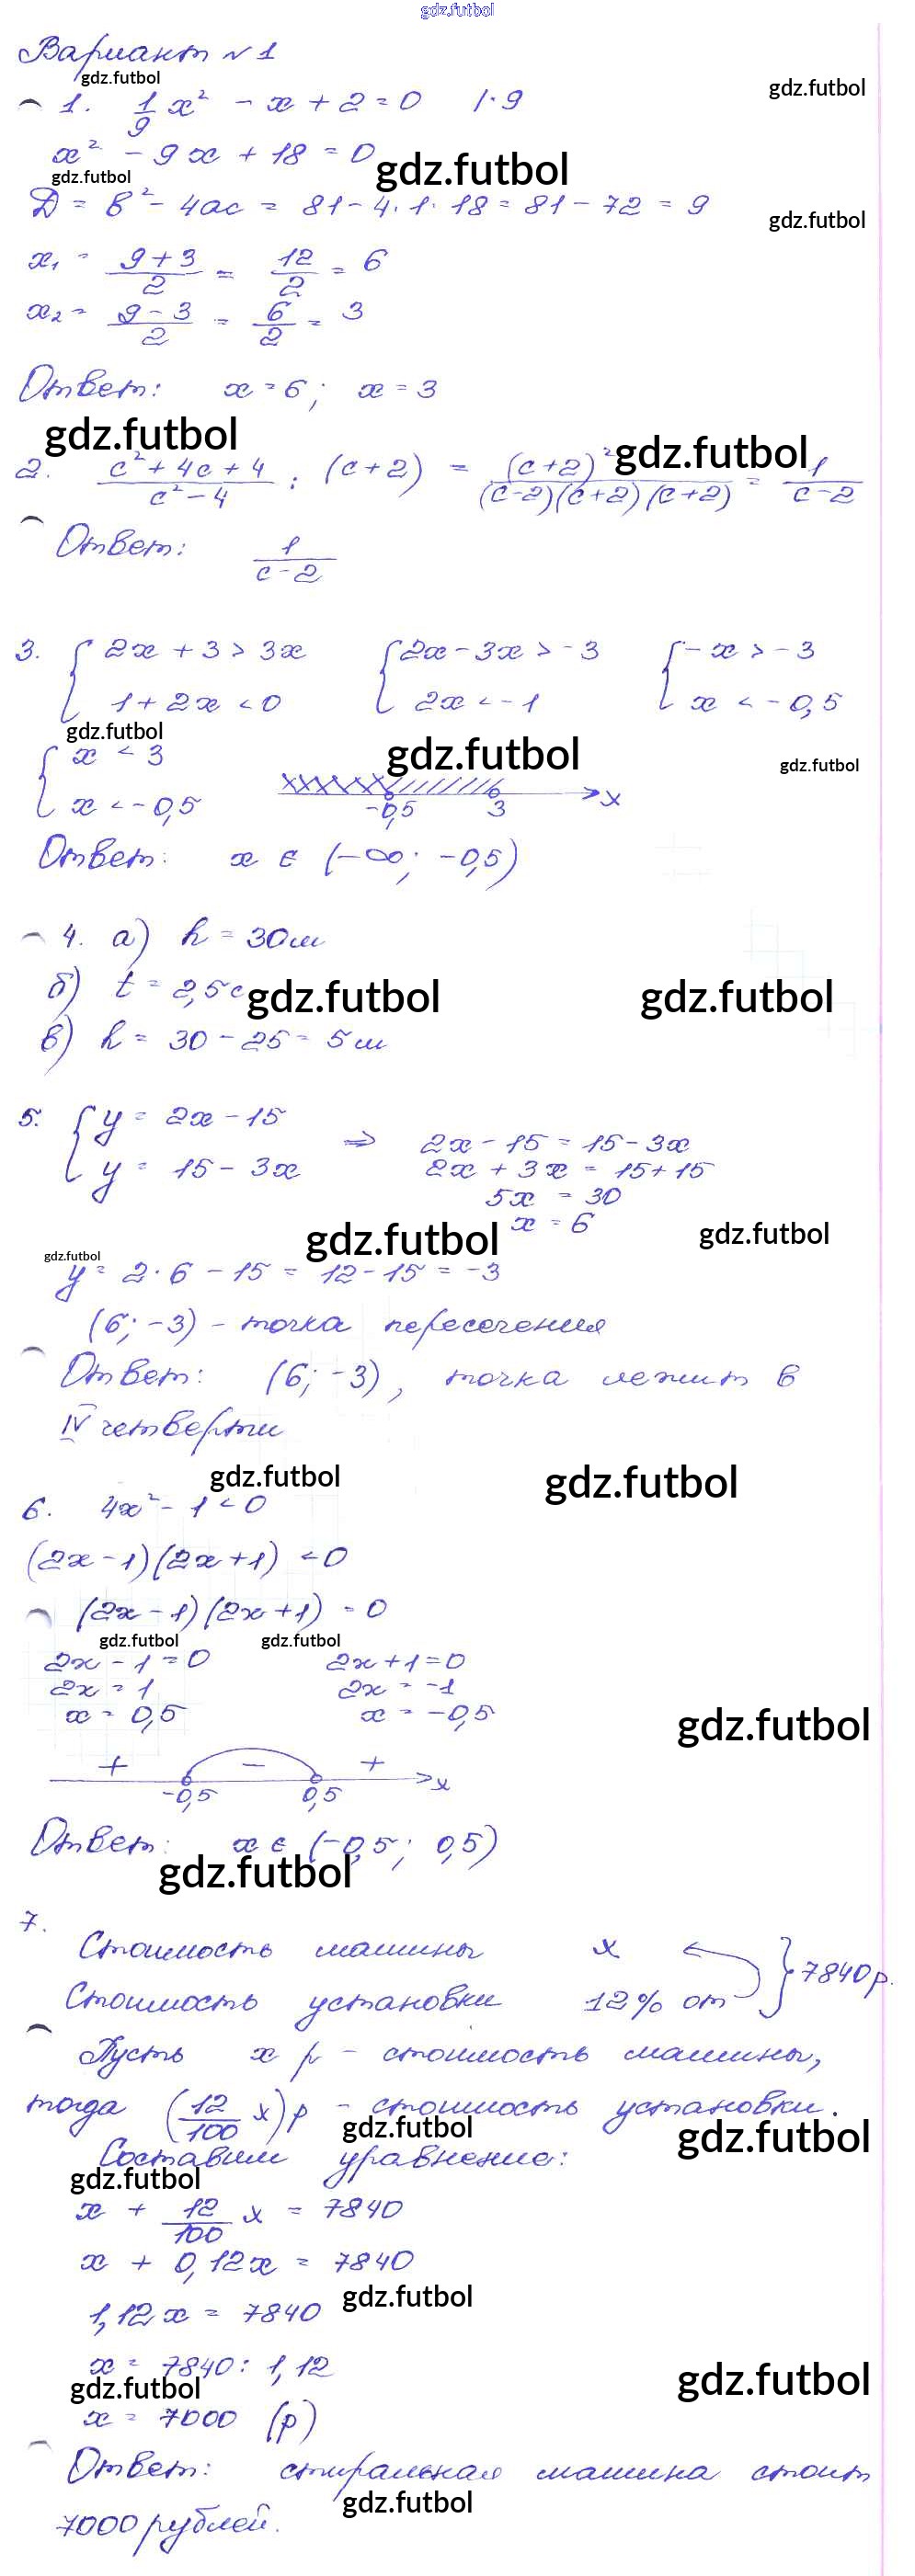 gdz.futbol
Вариант №1
gdz.futbol
gdz.futbol
1. 1/9 x² - x + 2 = 0 |·9
x² - 9x + 18 = 0
gdz.futbol
gdz.futbol
D = b² - 4ac = 81 - 4·1·18 = 81 - 72 = 9
gdz.futbol
x₁ = (9+3)/2 = 12/2 = 6
x₂ = (9-3)/2 = 6/2 = 3
Ответ: x = 6; x = 3
gdz.futbol
gdz.futbol
2. (c² + 4c + 4)/(c² - 4) : (c+2) = (c+2)²/((c-2)(c+2)(c+2)) = 1/(c-2)
Ответ: 1/(c-2)
3. { 2x + 3 > 3x { 2x - 3x > -3 { -x > -3
1 + 2x < 0 2x < -1 x < -0,5
gdz.futbol
{ x < 3
gdz.futbol
gdz.futbol
x < -0,5
-0,5 3 x
Ответ: x ∈ (-∞; -0,5)
4. а) h = 30 м
б) t = 2,5 с
gdz.futbol
gdz.futbol
в) h = 30 - 25 = 5 м
5. { y = 2x - 15 ⇒ 2x - 15 = 15 - 3x
y = 15 - 3x 2x + 3x = 15 + 15
5x = 30
x = 6
gdz.futbol
gdz.futbol
gdz.futbol
y = 2·6 - 15 = 12 - 15 = -3
(6; -3) - точка пересечения
Ответ: (6; -3), точка лежит в
IV четверти
gdz.futbol
gdz.futbol
6. 4x² - 1 < 0
(2x - 1)(2x + 1) < 0
(2x - 1)(2x + 1) = 0
gdz.futbol
gdz.futbol
2x - 1 = 0 2x + 1 = 0
2x = 1 2x = -1
x = 0,5 x = -0,5
gdz.futbol
+ - +
-0,5 0,5 x
Ответ: x ∈ (-0,5; 0,5)
gdz.futbol
7.
Стоимость машины x
Стоимость установки 12% от } 7840 р.
Пусть x р - стоимость машины,
тогда (12/100 x) р - стоимость установки.
gdz.futbol
gdz.futbol
Составим уравнение:
gdz.futbol
x + 12/100 x = 7840
x + 0,12x = 7840
gdz.futbol
1,12x = 7840
x = 7840 : 1,12
gdz.futbol
gdz.futbol
x = 7000 (р)
Ответ: стиральная машина стоит
gdz.futbol
7000 рублей.